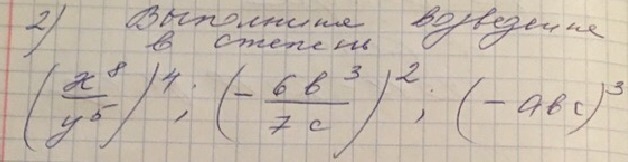 2) Выполните возведение
в степень
(x⁸/y⁵)⁴; (- 6b³/7c)²; (- abc)³